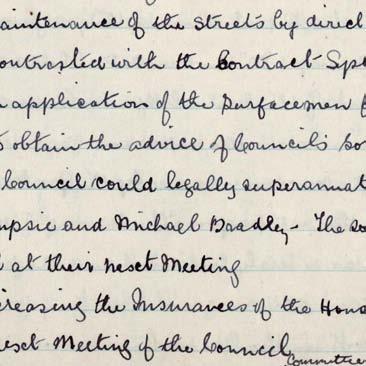 aintenance of the Streets by direct
ontrasted with the Contract Sys
application of the Surfacemen
obtain the advice of Council's So
Council could legally superannuat
mpsie and Michael Bradley - The so
at their next Meeting
creasing the Insurances of the Hous
next Meeting of the Council
Committee